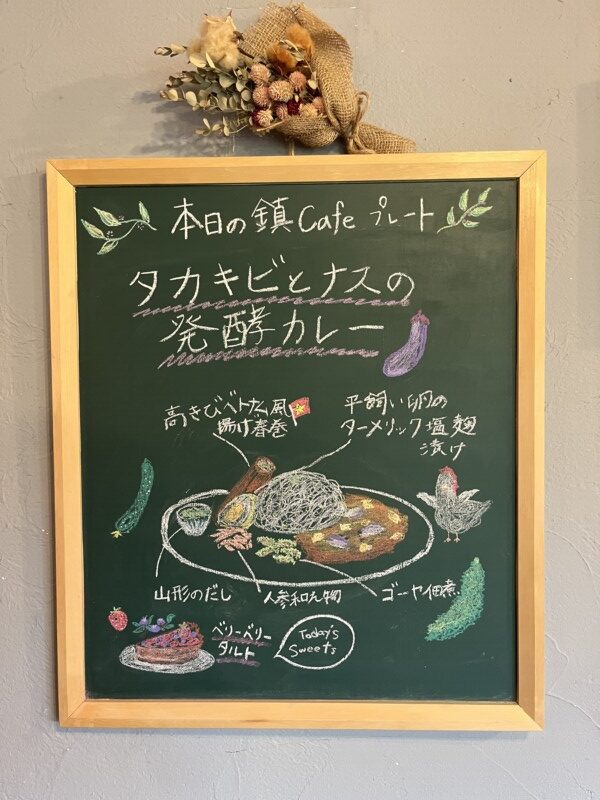 本日の鎮Cafeプレート
タカキビとナスの
発酵カレー
高きびベトナム風
揚げ春巻
平飼い卵の
ターメリック塩麹
漬け
山形のだし
人参和え物
ゴーヤ佃煮
ベリーベリー
タルト
Today's
Sweets